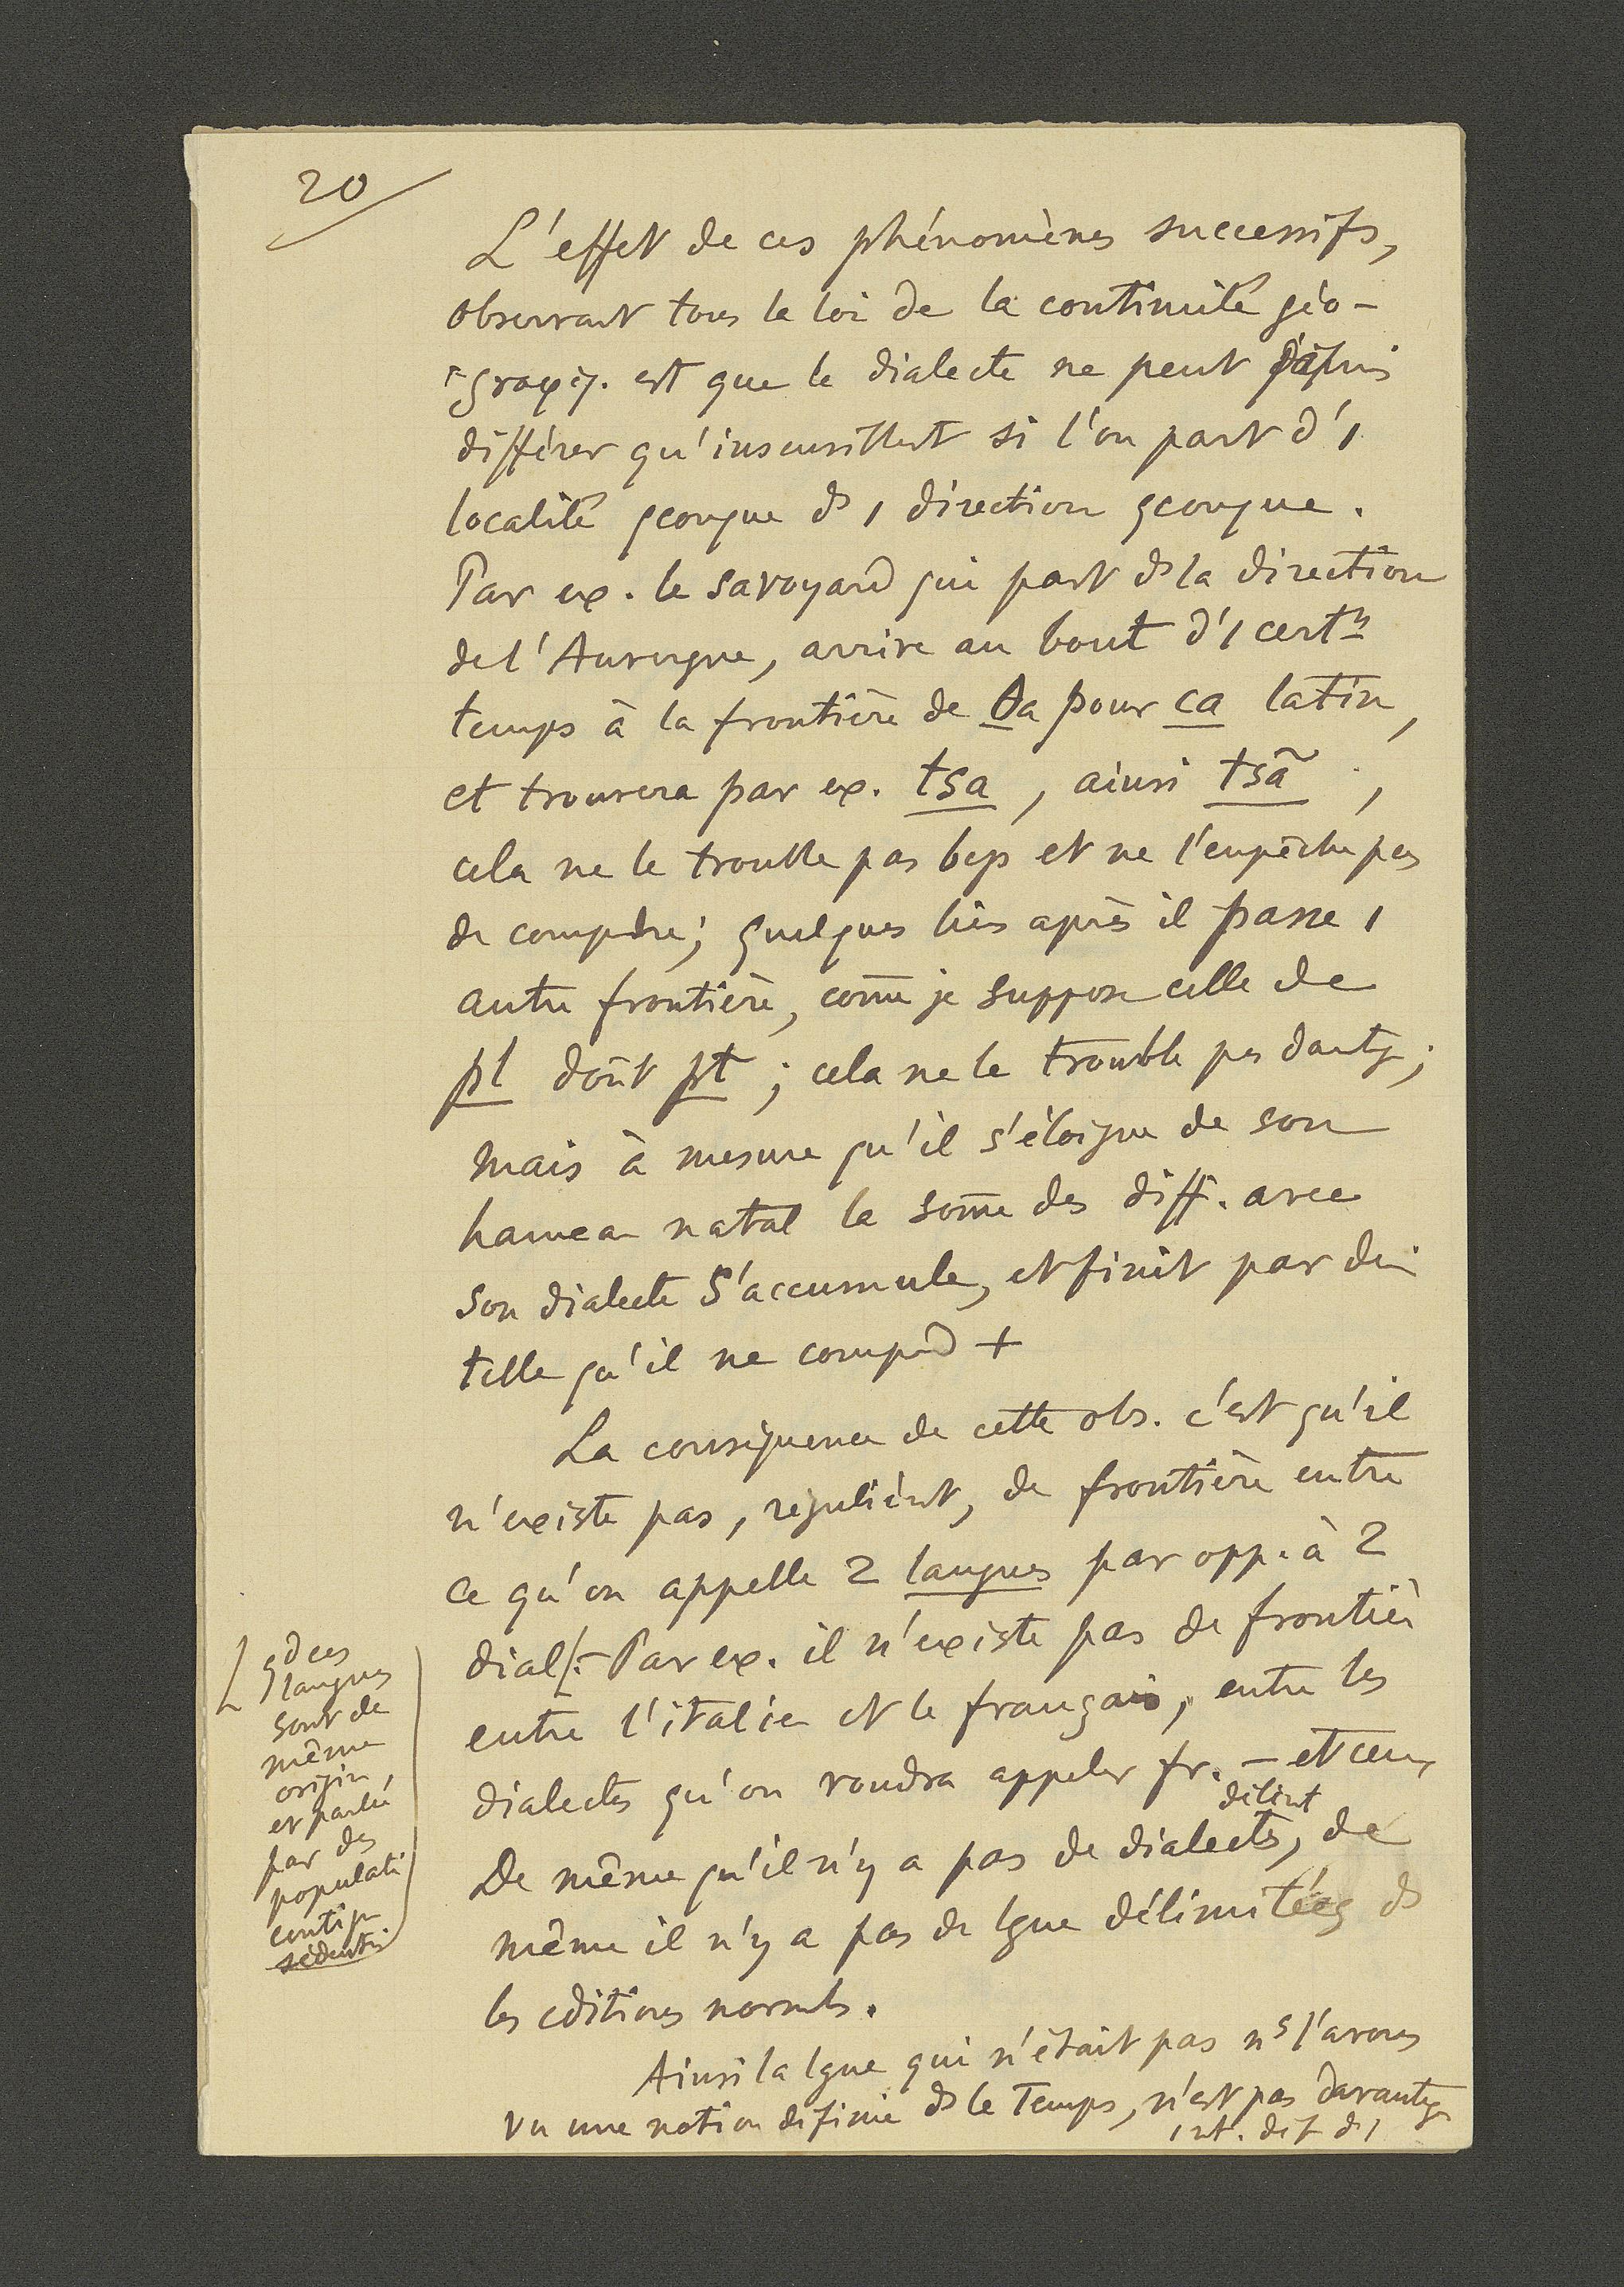 20
L'effet de ces phénomènes successifs,
observant tous la loi de la continuité géo-
graφiq. est que le dialecte ne peut
différer qu'insensiblert si l'on part d'1
localité qconque ds 1 direction qconque.
Par ex. le savoyard qui part ds la direction
de l'Auvergne, arrive au bout d'1 certn
temps à la frontière de θa pour ca latin,
et trouvera par ex. tsa, ainsi tsã,
cela ne le trouble pas bcp et ne l'empêche pas
de compdre; quelques lies après il passe 1
autre frontière, com̄e je suppose celle de
pl dont ; cela ne le trouble pas davtge;
mais à mesure qu'il s'éloigne de son
hameau natal la som̄e des diff. avec
son dialecte s'accumule, et finit par
telle qu'il ne compd +
La conséquence de cette obs. c'est qu'il
n'existe pas, régulièrt, de frontière entre
ce qu'on appelle 2 langues par opp. à 2
dial/.- Par ex. il n'existe pas de frontièr
entre l'italien et le français, entre les
dialectes qu'on voudra appeler fr. – et ceux
délimt
De même qu'il n'y a pas de dialects, de
même il n'y a pas de lgue délimitées ds
les cditions normls.
Ainsi la lgue qui n'était pas ns l'avons
vu une notion définie ds le temps, n'est pas davantge
1 nt. déf ds 1
qd ces
langues
sont de
même
origin,
et parlé
par des
populati
contig
sédentri